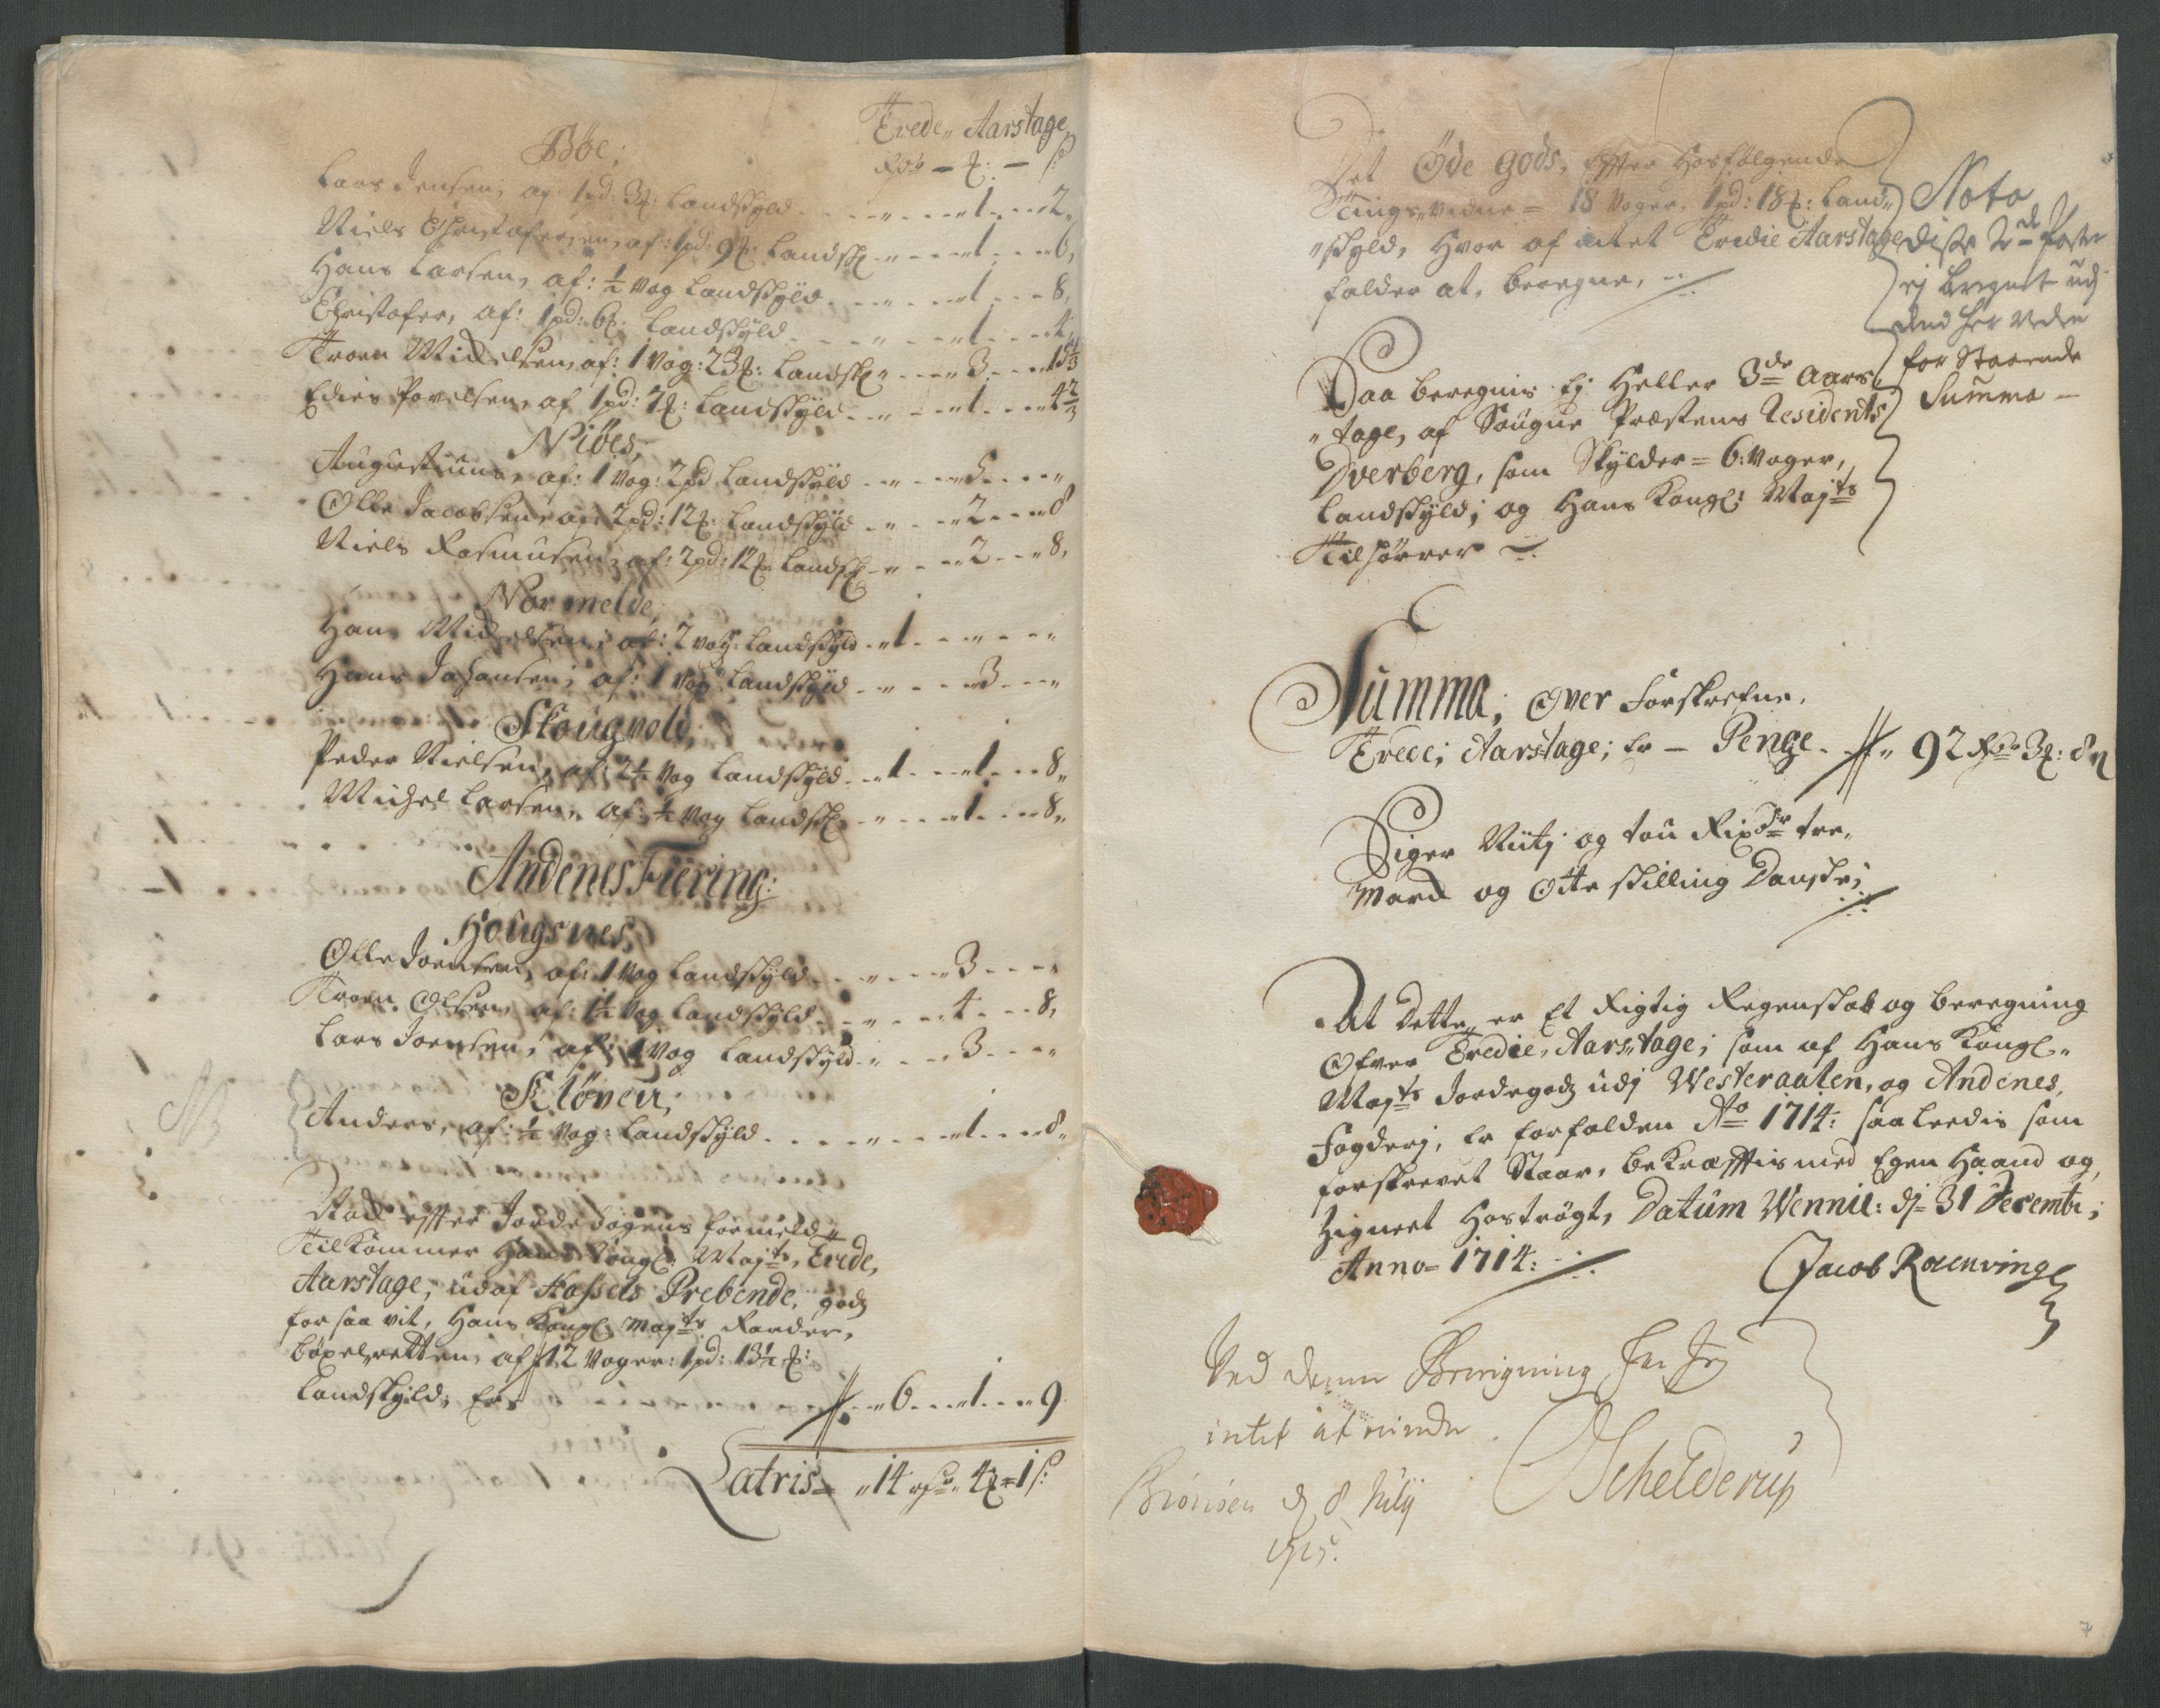 Tredie Aarstage
Rdr – ℳ: – ß
Bøe,
Lars Jensen, af 1 pd: 3 ℳ: Landskyld - - - „ - - - 1 - - - 2„
Niels Christofersen, af: 1 pd: 9 ℳ: Landsk: - „ - - - 1 - - - 6,
Hans Larsen, af: ½ Vog Landskyld - - - „ - - - 1 - - - 8,
Christofer, af: 1 pd: 6 ℳ: Landskyld - - - „ - - - 1 - - - 4,
Troen Mickelsen, af: 1 Vog: 23 ℳ: Landsk: „ - - - 3 - - - 15⅓
Edies Povelsen, af 1 pd: 7 ℳ: Landskyld - - „ - - - 1 - - - 4⅔
Niöes,
Augustinus, af: 1 Vog: 2 pd Landskyld - - „ - - - 5 - - - „
Olle Jacobsen, af: 2 pd: 12 ℳ: Landskyld - „ - - - 2 - - - 8
Niels Rasmusen, af: 2 pd: 12 ℳ Landsk: - „ - - - 2 - - - 8,
Normelde,
Hans Mickelsen, af: 2 Vog: Landskyld - - 1 - - - „ - - - „
Hans Johansen, af: 1 Vog Landskyld - - „ - - - 3 - - - „
Skougvold,
Peder Nielsen, af: 2½ Vog Landskyld - - 1 - - - 1 - - - 8„
Michel Larsen, af: ½ Vog Landsk: - - „ - - - 1 - - - 8„
Andenes Fiering:
Hougsnes,
Olle Joensen, af: 1 Vog Landskyld - - - „ - - - 3 - - - „
Troen Olsen, af: 1½ Vog Landskyld - - „ - - - 4 - - - 8,
Lars Joensen, af: 1 Vog Landskyld - - „ - - - 3 - - - „
Kløven,
NB Anders, af: ½ Vog: Landskyld - - - „ - - - 1 - - - 8„
Nock effter Jordebogens formeld
Tilkommer Hans Kongl: Majts, Tredie,
Aarstage, udaf Hassels Prebende, godz
forsaavit, Hans Kongl: Majts Raader,
böxelretten, af 12 Voger: 1 pd: 13½ ℳ:
Landskyld, Er - - „ 6 - - - 1 - - - 9
Latris „ 14 rdr „ 4 ℳ = 1 ß:
Det Øde gods, effter hosfølgende
Tings-vidne = 18 Voger, 1 pd: 18 ℳ: Land„
„skyld, hvor af intet Tredie Aarstage
falder at, beregne,
Nota
disse 2de Poster
ej beregnet udj
dend her Neden
for Staaende
Summa –
Saa beregnis Ej heller 3die Aars,
„tage, af Sougne Præstens Residents
Dverberg, som Skylder = 6: Voger,
Landskyld, og Hans Kongl: Majts
Tilhörrer
Summa, Over Forskrefne,
Tredie, Aarstage, Er – Penge - „ 92 Rdr 3 ℳ: 8 ß
Siger Niitj og tou Rixdr tre,
Marck og Otte skilling Danske,
At Dette er Et Rigtig Regenskab og beregning
Ofver Tredie, Aars,tage, som af Hans Kongl„
Majts Jordegodz udj Westeraalen, og Andenes,
Fogderj, Er forfalden Ao 1714: saaledis som
forskrevet Staar, bekræfftis med Egen Haand og,
Zignet hoströgt, Datum Wennie: dj= 31 Decembr,
Anno= 1714:
Jacob Rosenving
Ved denne Beregning har Jeg
intet at minde.
Bronøen d 8 Julij
1715.
Schelderup
7